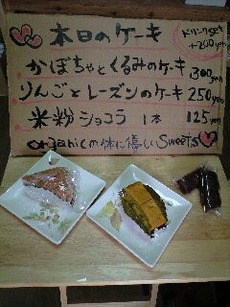 本日のケーキ
ドリンクset
+200yen
かぼちゃとくるみのケーキ 300yen
りんごとレーズンのケーキ 250yen
米粉ショコラ 1本 125yen
organicの体に優しいSweets